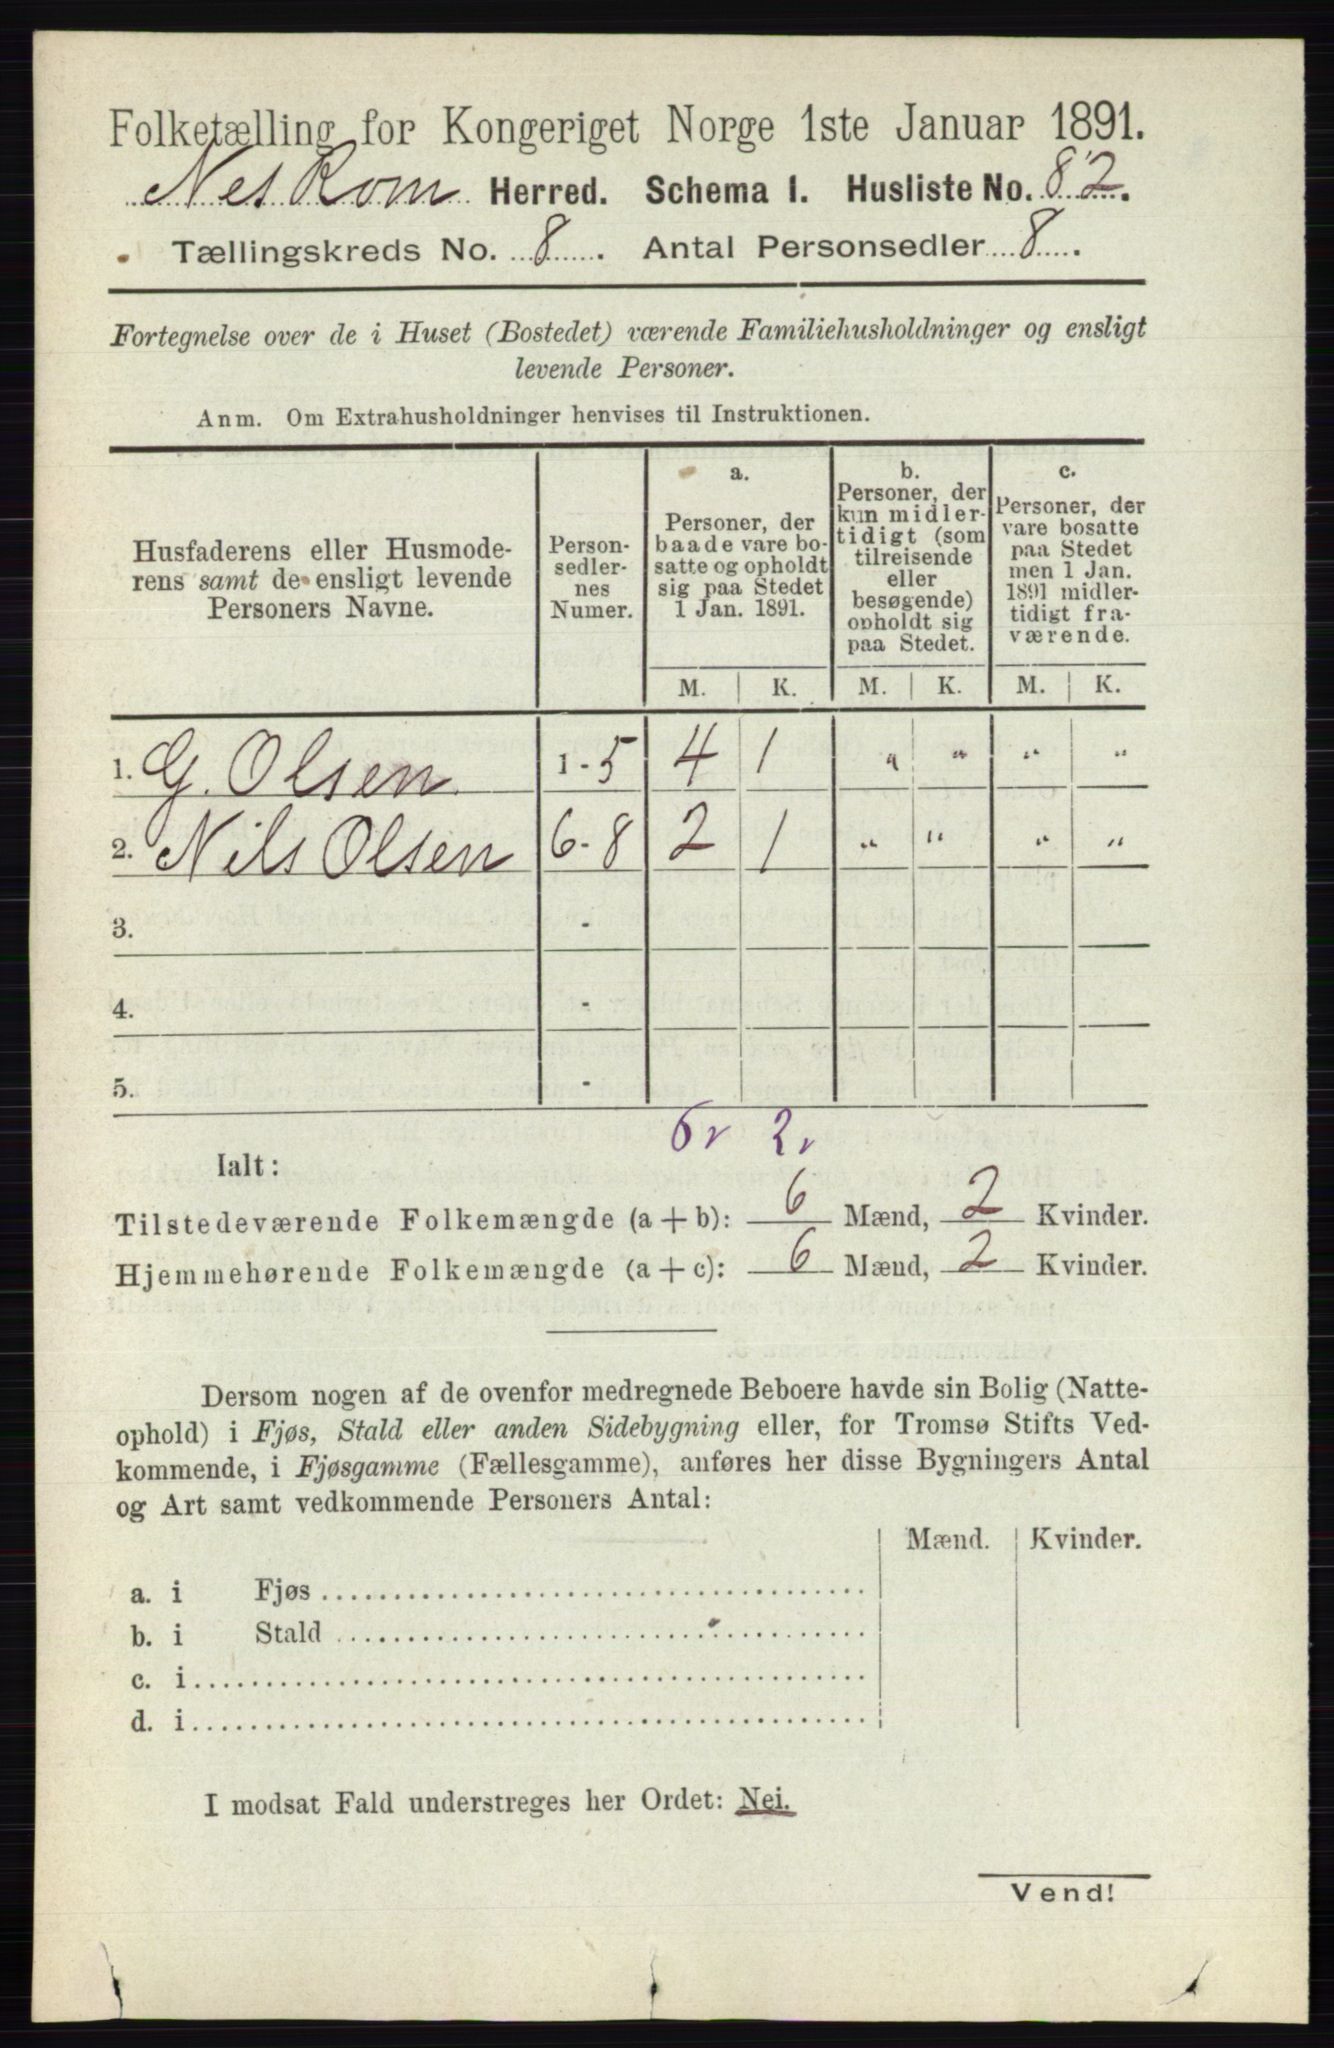 Folketælling for Kongeriget Norge 1ste Januar 1891.
Nes Rom Herred. Schema 1. Husliste No. 82.
Tællingskreds No. 8. Antal Personsedler 8.
Fortegnelse over de i Huset (Bostedet) værende Familiehusholdninger og ensligt
levende Personer.
Anm. Om Extrahusholdninger henvises til Instruktionen.
Husfaderens eller Husmode-
rens samt de ensligt levende
Personers Navne.
Person-
sedler-
nes
Numer.
a.
Personer, der
baade vare bo-
satte og opholdt
sig paa Stedet
1 Jan. 1891.
b.
Personer, der
kun midler-
tidigt (som
tilreisende
eller
besøgende)
opholdt sig
paa Stedet.
c.
Personer, der
vare bosatte
paa Stedet
men 1 Jan.
1891 midler-
tidigt fra-
værende.
M. K. M. K. M. K.
1. G. Olsen 1-5 4 1 " " " "
2. Nils Olsen 6-8 2 1 " " " "
3. -
4. -
5. -
6 v 2 v
Ialt:
Tilstedeværende Folkemængde (a+b): 6 Mænd, 2 Kvinder.
Hjemmehørende Folkemængde (a+c): 6 Mænd, 2 Kvinder.
Dersom nogen af de ovenfor medregnede Beboere havde sin Bolig (Natte-
ophold) i Fjøs, Stald eller anden Sidebygning eller, for Tromsø Stifts Ved-
kommende, i Fjøsgamme (Fællesgamme), anføres her disse Bygningers Antal
og Art samt vedkommende Personers Antal:
Mænd. Kvinder.
a. i Fjøs
b. i Stald
c. i
d. i
I modsat Fald understreges her Ordet: Nei.
Vend!